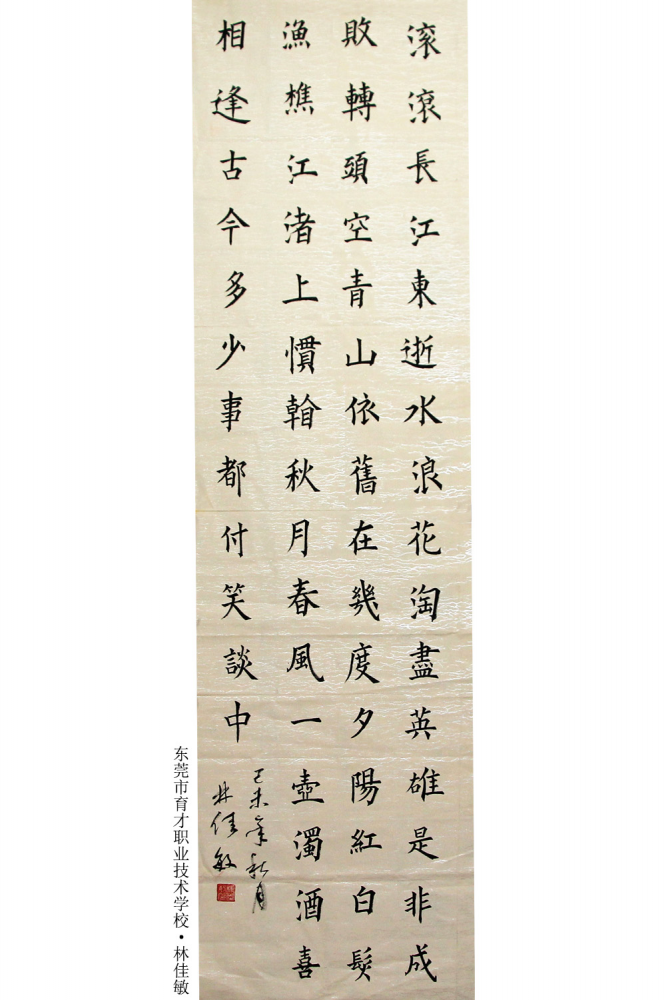 滚滾長江東逝水浪花淘盡英雄是非成
敗轉頭空青山依舊在幾度夕陽紅白髮
漁樵江渚上慣看秋月春風一壺濁酒喜
相逢古今多少事都付笑談中
乙未年秋月
林佳敏
东莞市育才职业技术学校·林佳敏